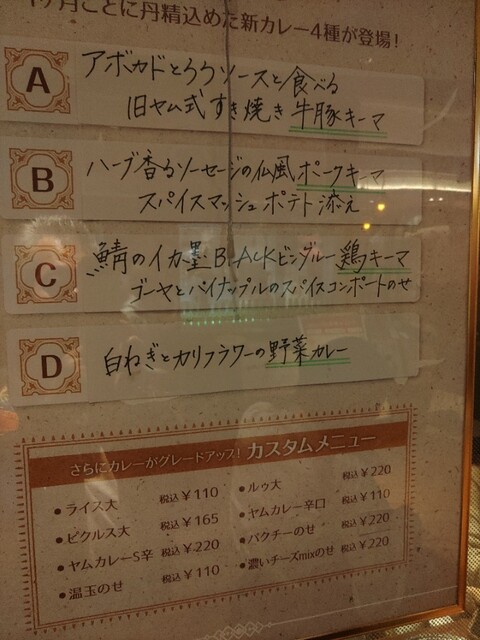 1ヶ月ごとに丹精込めた新カレー4種が登場!
A
アボカドとろろソースと食べる
旧ヤム式すき焼き牛豚キーマ
B
ハーブ香るソーセージの仏風ポークキーマ
スパイスマッシュポテト添え
C
鯖のイカ墨BLACKビンダルー鶏キーマ
ゴーヤとパイナップルのスパイスコンポートのせ
D
白ねぎとカリフラワーの野菜カレー
さらにカレーがグレードアップ! カスタムメニュー
●ライス大 税込¥110
●ピクルス大 税込¥165
●ヤムカレーS辛 税込¥220
●温玉のせ 税込¥110
●ルゥ大 税込¥220
●ヤムカレー辛口 税込¥110
●パクチーのせ 税込¥220
●濃いチーズmixのせ 税込¥220